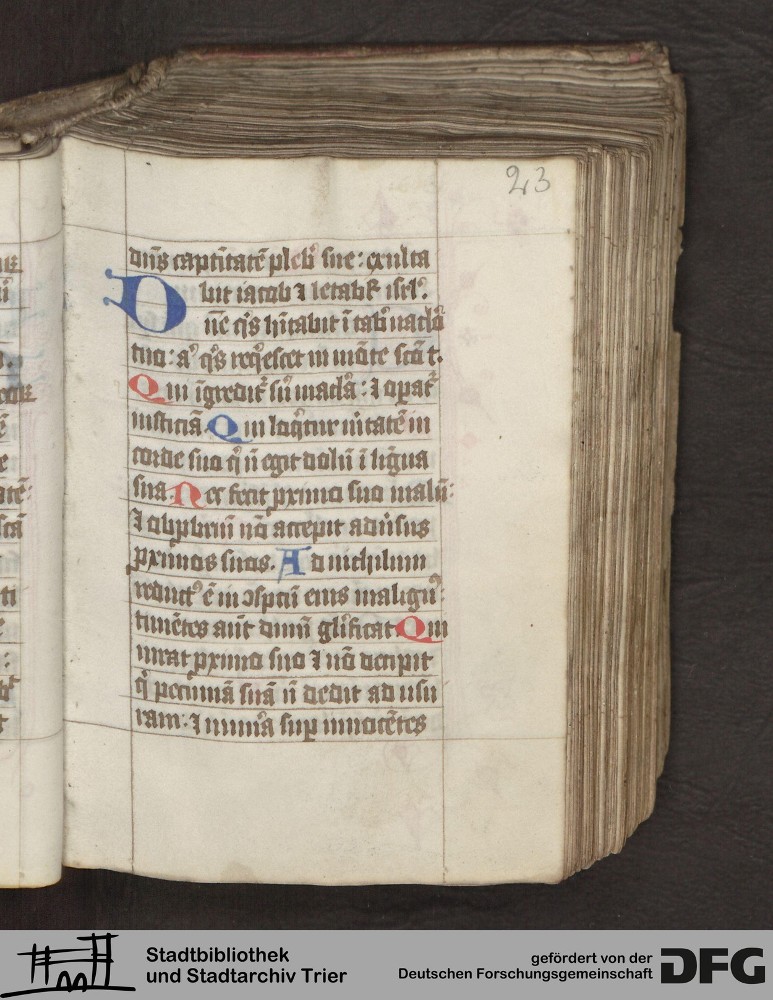 23
dn̄s captiuitatē pleb' sue: exulta
bit iacob ⁊ letabit᷑ isrl'.
Dn̄e q's hītabit ī tab'nac̄lo
tuo: a' q's req'escet in mōte scō t.
Qui īgredit᷑ sn̄ macl'a: ⁊ opat᷑
iusticiā Qui loq̄tur u'itatē in
corde suo q̄ n̄ egit dolū ī ligua
sua. Nec fecit pximo suo malū:
⁊ obpbriū nō accepit adu'sus
pximos suos. Ad nichilum
reduct' ē in ↄspcū eius malign':
timētes aūt dnm̄ gl'ificat Qui
iurat pximo suo ⁊ nō decipit
q̄ pecuniā suā n̄ dedit ad usu
ram: ⁊ mun'a sup innocētes
Stadtbibliothek
und Stadtarchiv Trier
gefördert von der
Deutschen Forschungsgemeinschaft
DFG